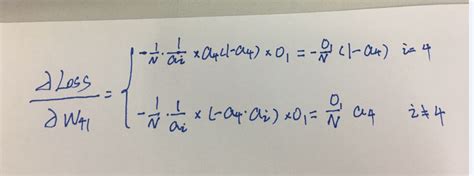 ∂Loss/∂W₄₁ = { -1/N · 1/aᵢ × a₄(1-a₄) × O₁ = -O₁/N (1-a₄)   i=4
-1/N · 1/aᵢ × (-a₄·aᵢ) × O₁ = O₁/N a₄   i≠4